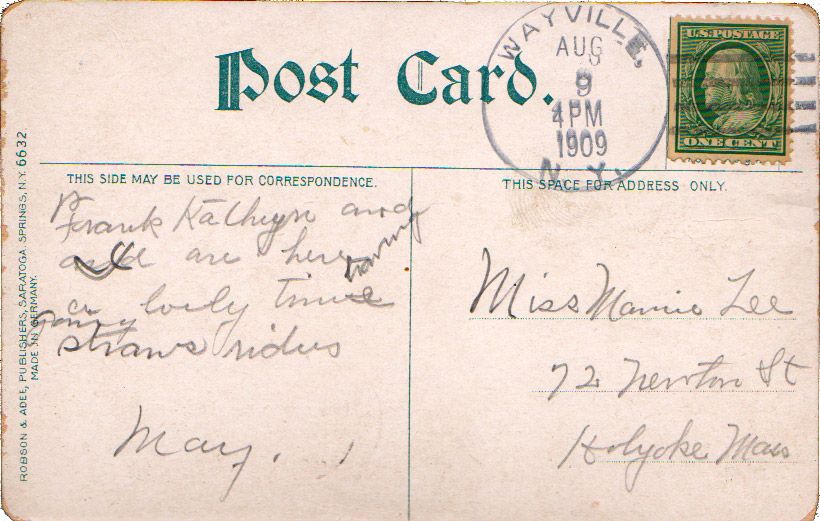 Post Card.
WAYVILLE,
AUG
9
4 PM
1909
N.Y.
U.S. POSTAGE
ONE CENT
THIS SIDE MAY BE USED FOR CORRESPONDENCE.
THIS SPACE FOR ADDRESS ONLY.
Frank Kathryn and
I are here having
a lovely time
going straws rides
May.
Miss Mamie Lee
72 Newton St
Holyoke Mass
ROBSON & ADEE, PUBLISHERS, SARATOGA SPRINGS, N.Y. 6632
MADE IN GERMANY.